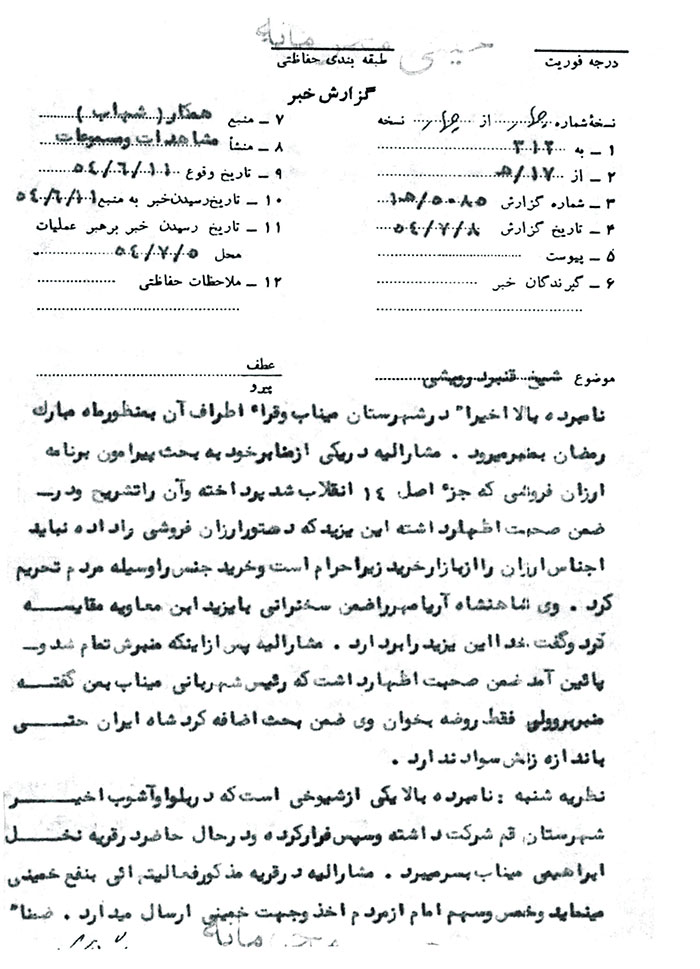 درجه فوریت
طبقه بندی حفاظتی
گزارش خبر
نسخهٔ شماره از نسخه
۱ ـ به ۳۱۲
۲ ـ از ۱۷/ه
۳ ـ شماره گزارش ۱۰ه/۵۰۸۵
۴ ـ تاریخ گزارش ۵٤/۷/۸
۵ ـ پیوست
۶ ـ گیرندگان خبر
۷ ـ منبع همکار ( شهاب )
۸ ـ منشأ مشاهدات ومسموعات
۹ ـ تاریخ وقوع ۵٤/۶/۱۱
۱۰ ـ تاریخ رسیدن خبر به منبع ۵٤/۶/۱۱
۱۱ ـ تاریخ رسیدن خبر برهبر عملیات
محل ۵٤/۷/۵
۱۲ ـ ملاحظات حفاظتی
موضوع شیخ قنبر درویشی
عطف
پیرو
نامبرده بالا اخیرا" در شهرستان میناب وقراء اطراف آن بمنظور ماه مبارك
رمضان بمنبر میرود . مشارالیه در یکی از منابر خود به بحث پیرامون برنامه
ارزان فروشی که جزء اصل ۱٤ انقلاب شد پرداخته وآن راتشریح ودر
ضمن صحبت اظهارداشته این یزید که دستورارزان فروشی راداده نباید
اجناس ارزان را ازبازارخرید زیراحرام است وخرید جنس راوسیله مردم تحریم
کرد . وی شاهنشاه آریامهرراضمن سخنرانی با یزید ابن معاویه مقایسه
کرد وگفت خدا این یزید رابردارد . مشارالیه پس ازاینکه منبرش تمام شد و
پائین آمد ضمن صحبت اظهارداشت که رئیس شهربانی میناب بمن گفته
منبربروولی فقط روضه بخوان وی ضمن بحث اضافه کرد شاه ایران حتی
باندازه زنش سواد ندارد .
نظریه شنبه : نامبرده بالا یکی ازشیوخی است که دربلوا وآشوب اخیر
شهرستان قم شرکت داشته وسپس فرارکرده ودرحال حاضر درقریه نخل
ابراهیمی میناب بسرمیبرد . مشارالیه درقریه مذکورفعالیتهائی بنفع خمینی
مینماید وخمس وسهم امام ازمردم اخذ وجهت خمینی ارسال میدارد . ضمنا"